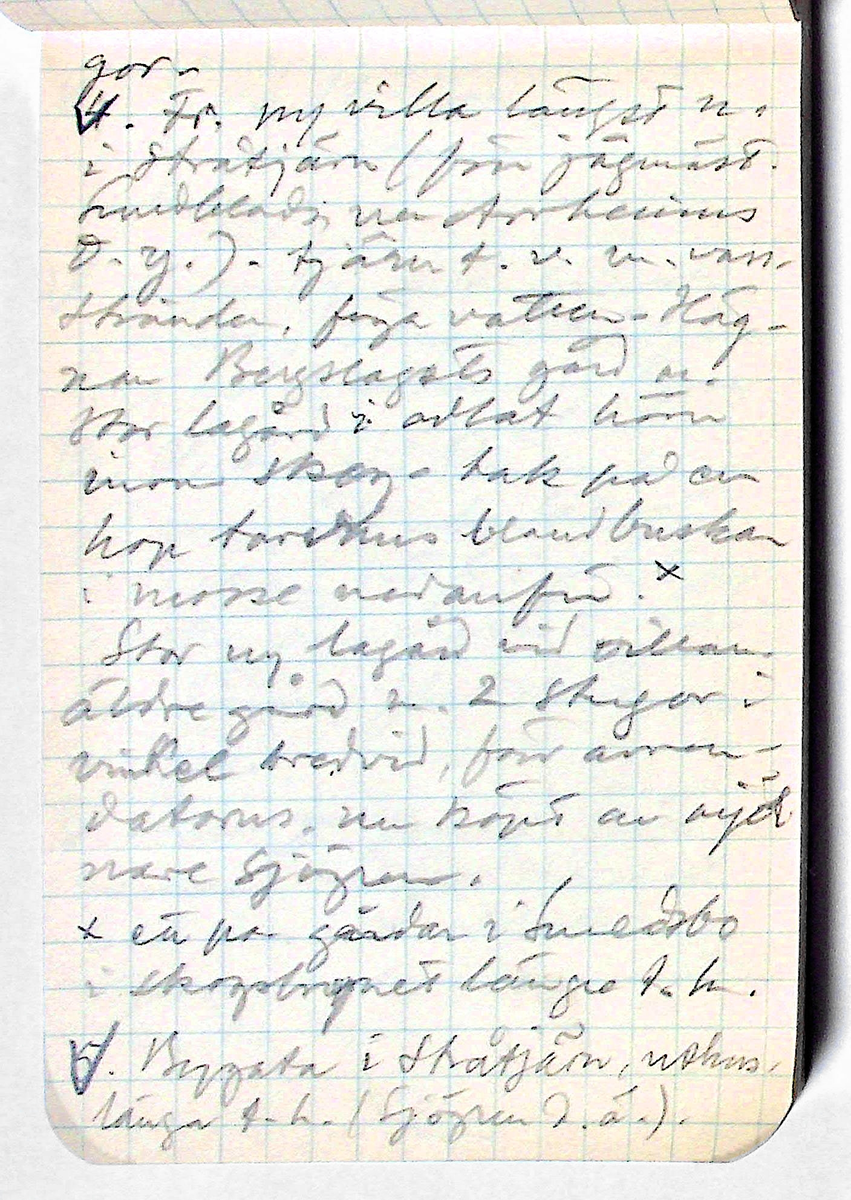 gor.
4. Fr. ny villa längst n.
i Stråtjärn (förr jägmäst.
Lindblads, nu Arrhenius
d. y.). tjärn t. v. m. vass-
stränder, föga vatten. Häg-
nar Bergslagets gård n.
Stor lagård i odlat hörn
inom skog. tak på en
hop torvhus bland buskar
i mosse nedanför. x
Stor ny lagård vid villan.
äldre gård m. 2 stugor i
vinkel bredvid, förr arren-
datorns, nu köpt av
nare Sjögren.
x ett par gårdar i Smedsbo
i skogsbrynet längre t. h.
5. Bygata i Stråtjärn, uthus-
länga t. h. (Sjögren d. ä.).